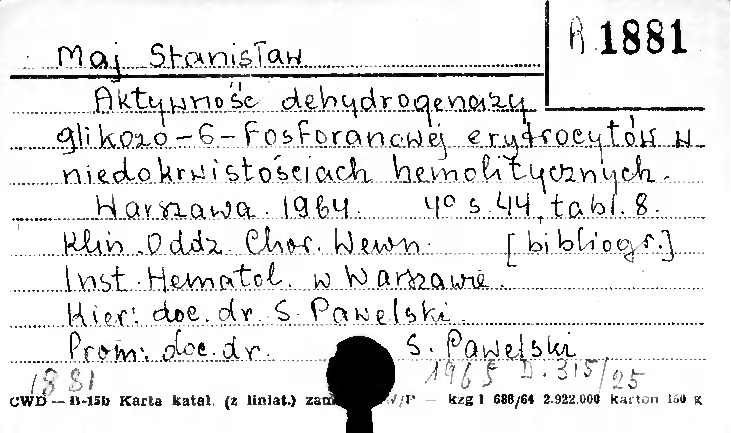 Maj Stanisław
R 1881
Aktywność dehydrogenazy
glikozo-6-fosforanowej erytrocytów w
niedokrwistościach hemolitycznych.
Warszawa. 1964. 4° s. 44, tabl. 8.
Klin. Oddz. Chor. Wewn. [bibliogr.]
Inst. Hematol. w Warszawie.
Kier: doc. dr S. Pawelski.
Prom: doc. dr. S. Pawelski
1881 1965 D. 315/25
CWD — B-15b Karta katal. (z liniat.) /P — kzg 1 686/64 2.922.000 karton 160 g